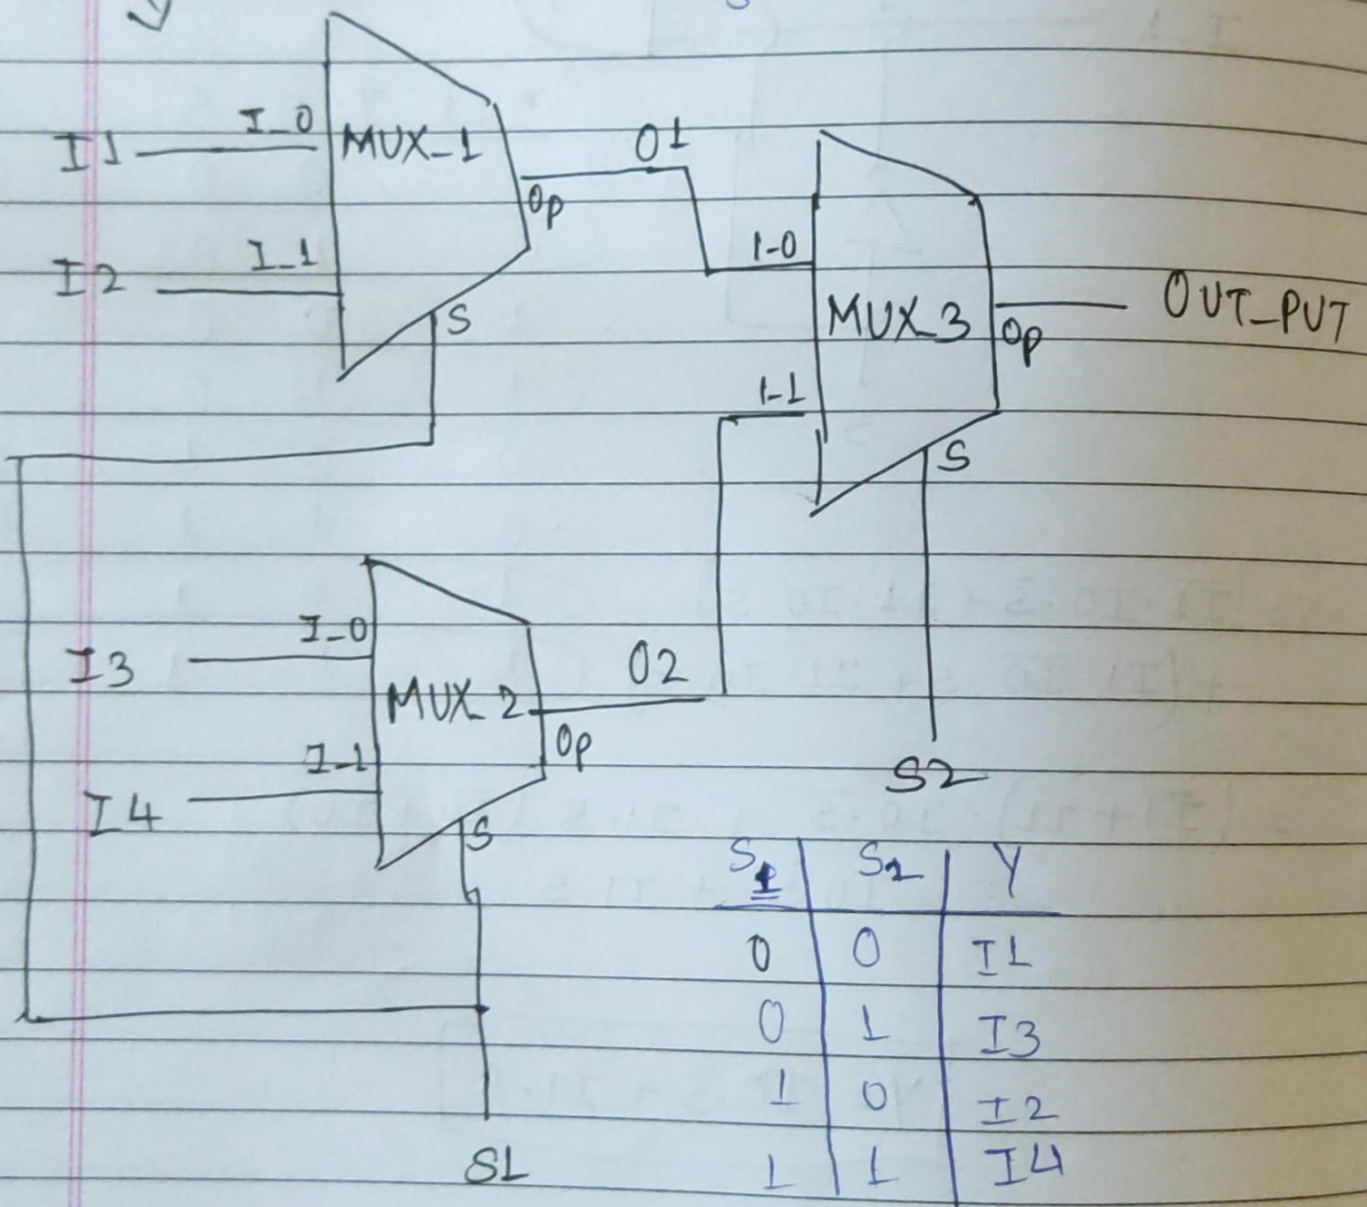 I1 I_0 MUX_1 O1
Op
I2 I_1 S
I-0
MUX_3 OUT_PUT
Op
I-1
S
I3 I_0 O2
MUX_2
Op
I4 I-1 S
S2
S1
S1 S2 Y
0 0 I1
0 1 I3
1 0 I2
1 1 I4